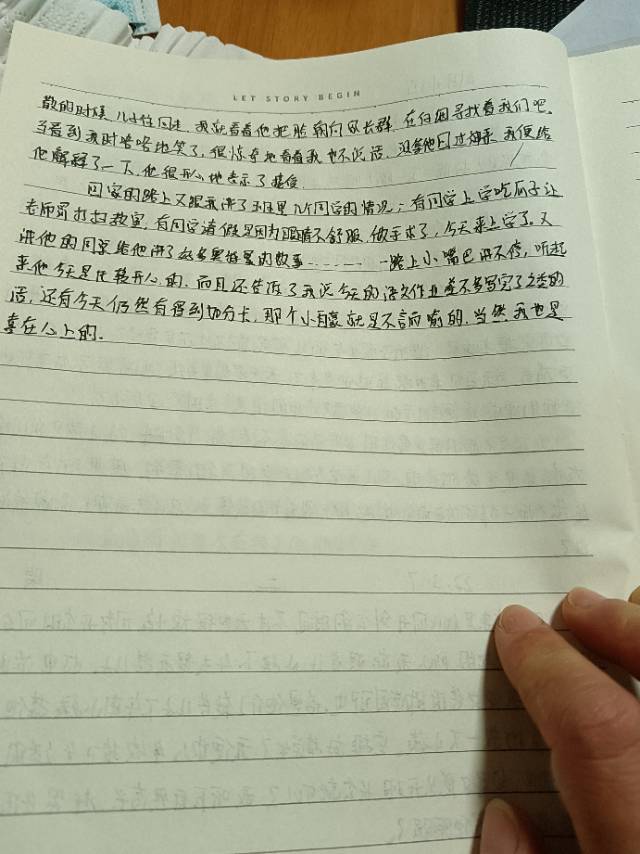 LET STORY BEGIN
散的时候,儿子往回走,我就看着他把脸朝向家长群,在仔细寻找着我们吧,
当看到我时咯咯地笑了,很惊奇地看着我也不说话,没等他回过神来,我便给
他解释了一下,他很开心地表示了接受.
回家的路上又跟我讲了班里几个同学的情况;有同学上学吃瓜子让
老师罚打扫教室,有同学请假是因为眼睛不舒服,做手术了,今天来上学了,又
讲他的同桌给他讲了好多奥特曼的故事……… 一路上小嘴巴讲不停,听起
来他今天是比较开心的,而且还告诉了我说今天的语文作业差不多写完了之类的
话,还有今天仍然有得到加分卡,那个小自豪就是不言而喻的,当然我也是
喜在心上的.